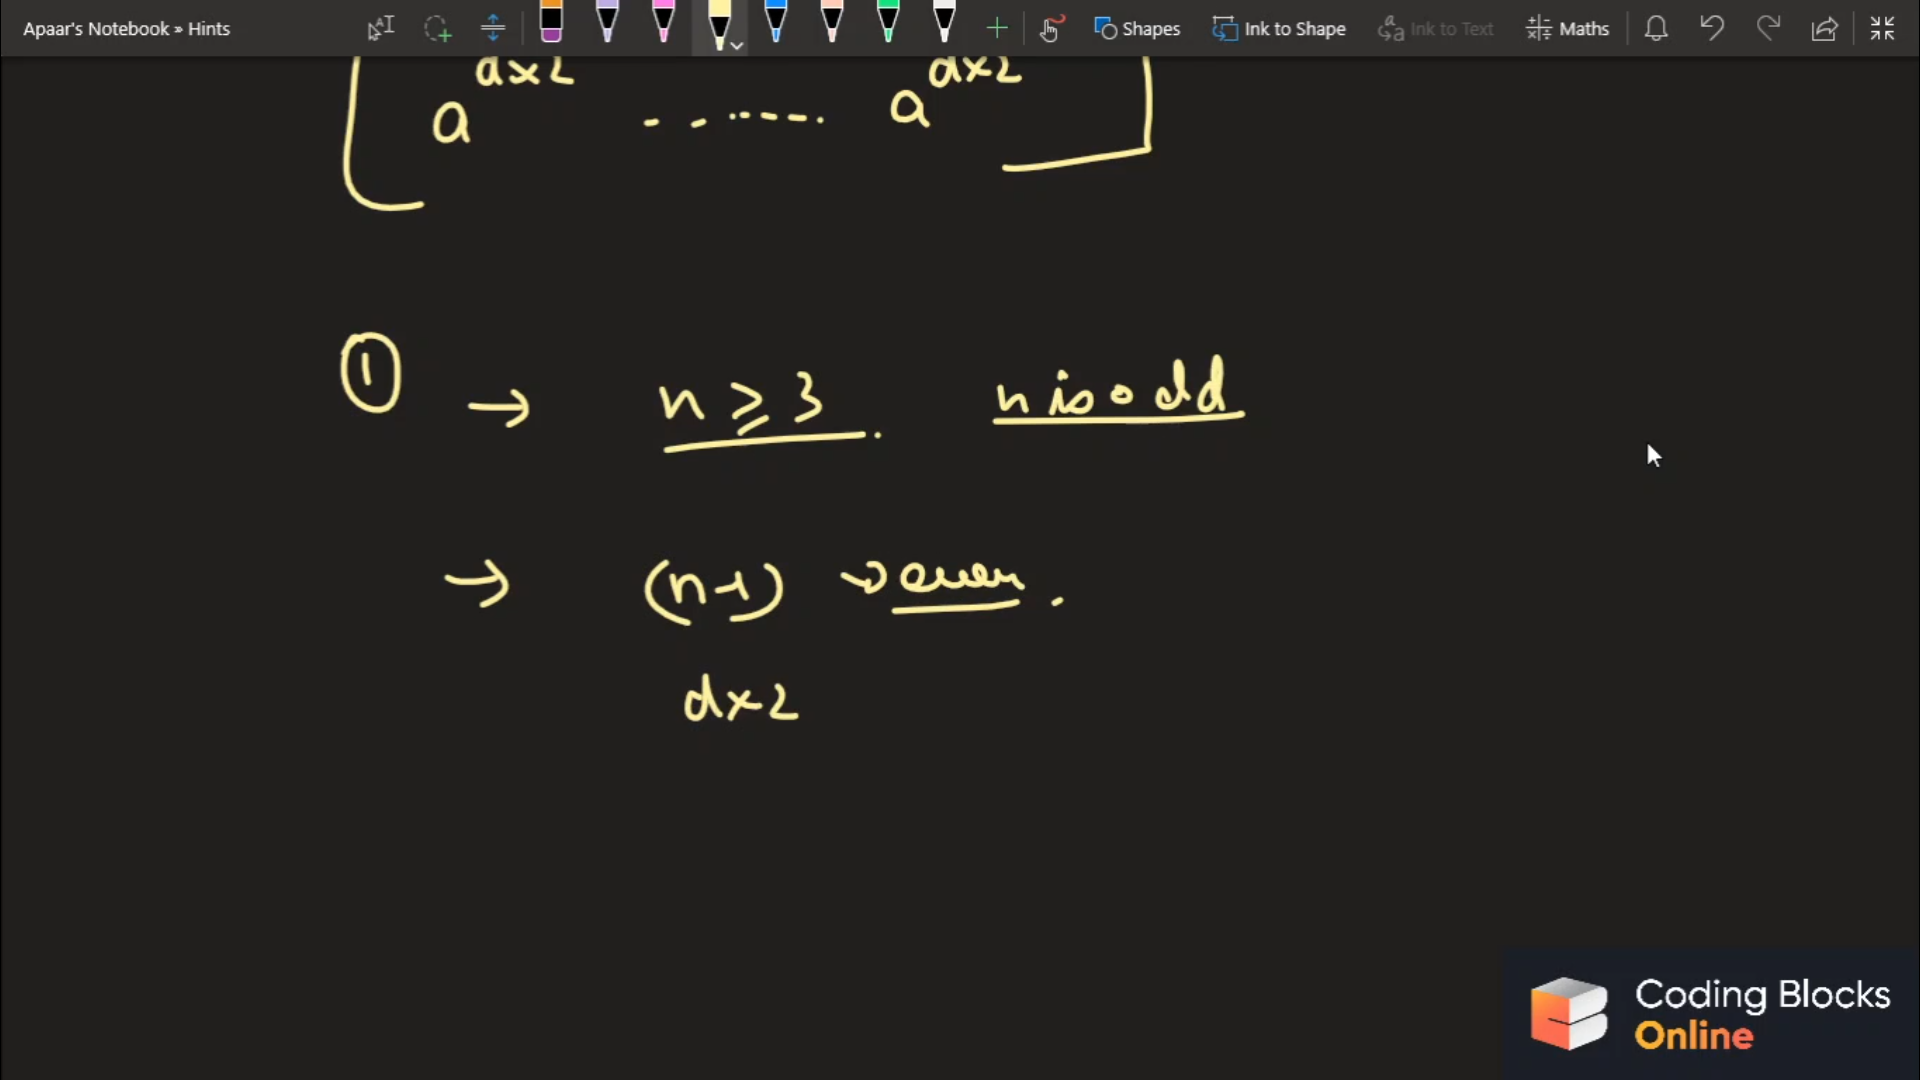 Apaar's Notebook » Hints Shapes Ink to Shape Ink to Text Maths
a^dx2 - - ...---. a^dx2
① → n ≥ 3. n is odd
→ (n-1) → even.
dx2
Coding Blocks
Online